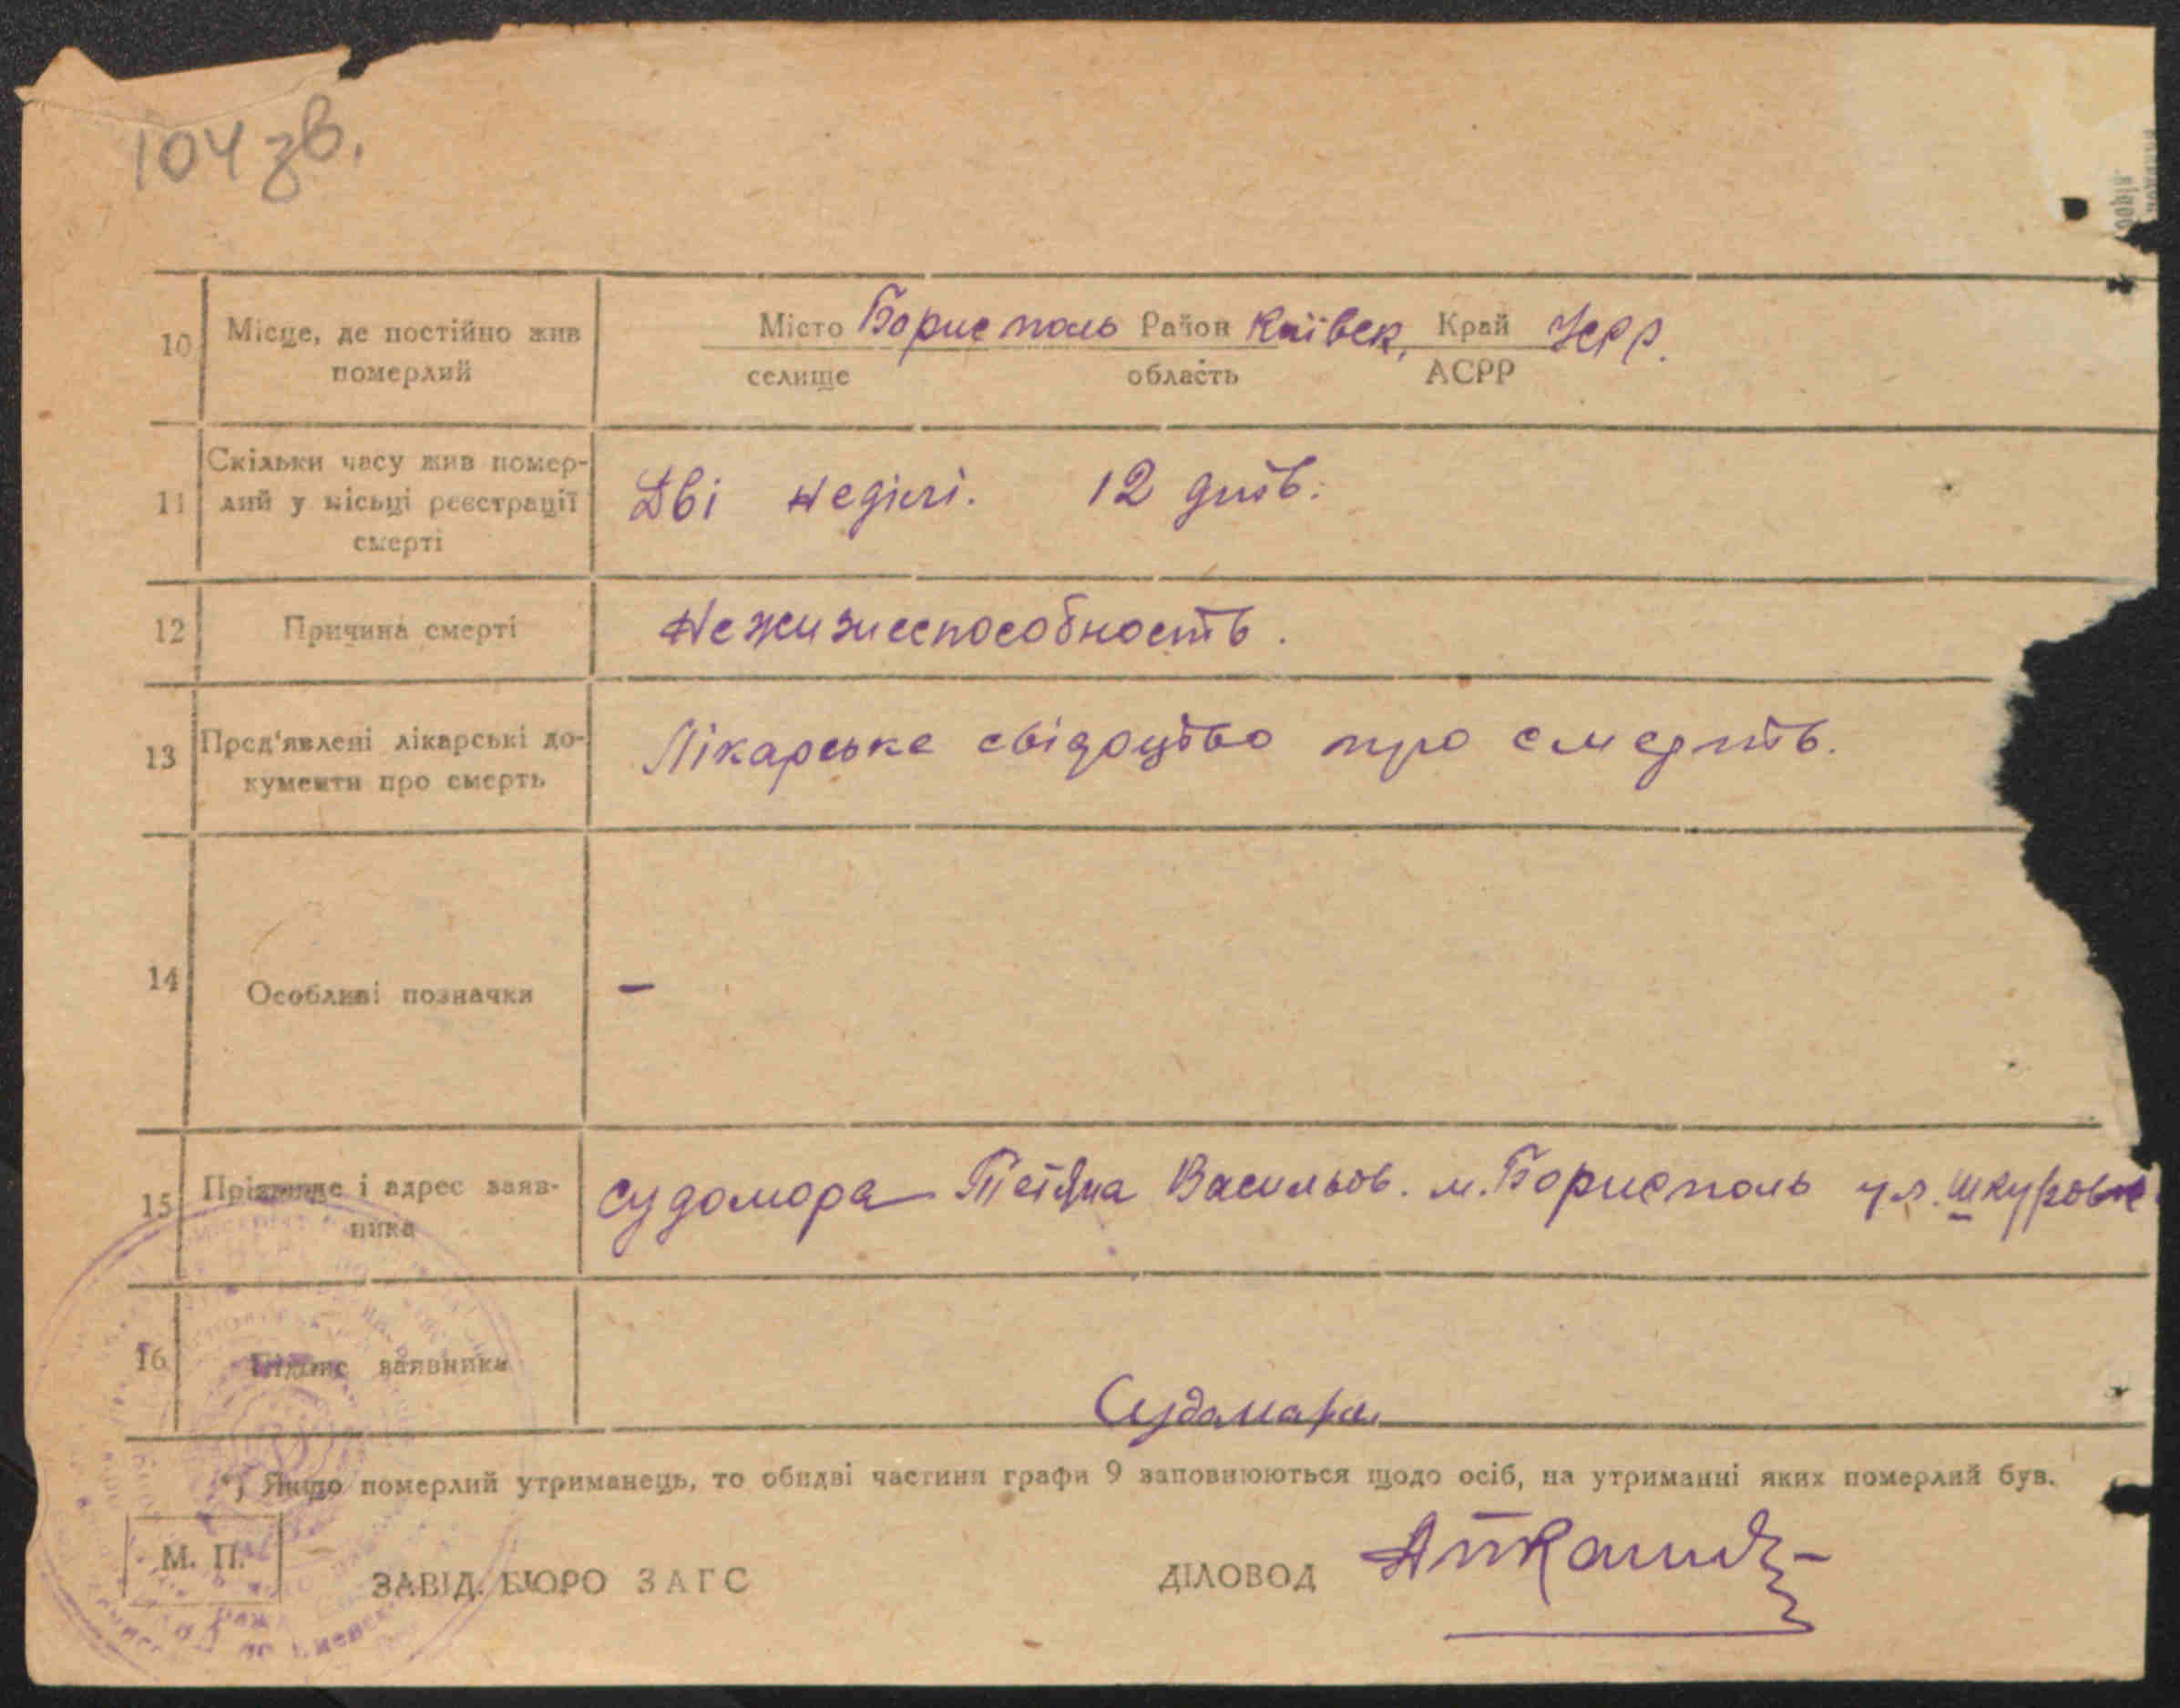 104 зв.
10 Місце, де постійно жив Місто Бориспoль Район Київск, Край УСРР.
померлий селище область АСРР
Скільки часу жив помер-
11 лий у місьці реєстрації Дві неділі. 12 днів.
смерті
12 Причина смерті Нежизнеспособность.
13 Пред'явлені лікарські до- Лікарське свідоцтво про смерть.
кументи про смерть
14 Особливі позначки –
15 Прізвище і адрес заяв- Судомора Тетяна Васильов. м. Бориспoль ул. Шкуровка
ника
16 Підпис заявника Судомора
*) Якщо померлий утриманець, то обидві частини графи 9 заповнюються щодо осіб, на утриманні яких померлий був.
М. П.
ЗАВІД. БЮРО ЗАГС ДІЛОВОД